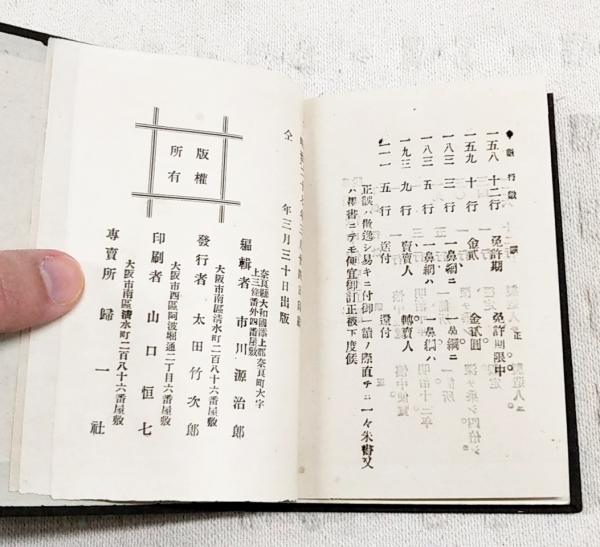 誤 正
一五八 十二行 免許期 免許期限中
一五九 十行 金貳 金貳圓
一八三 三行 一鼻網ハ 一鼻綱ニ
一八三 五行 一鼻網ハ 一鼻綱ハ
一九三 九行 賣賣人 轉賣人
二一一 五行 送付 還付
正誤ハ散逸シ易キニ付御一讀ノ際直チニ一々朱書又
ハ墨書ニテモ便宜御訂正被下度候
年三月三十日出版
仝
版權
所有
奈良縣大和國添上郡奈良町大字
上三條番外四番屋敷
編輯者 市川源治郎
大阪市南區清水町二百八十六番屋敷
發行者 太田竹次郎
大阪市西區阿波堀通二丁目六番屋敷
印刷者 山口恒七
大阪市南區清水町二百八十六番屋敷
專賣所 歸一社